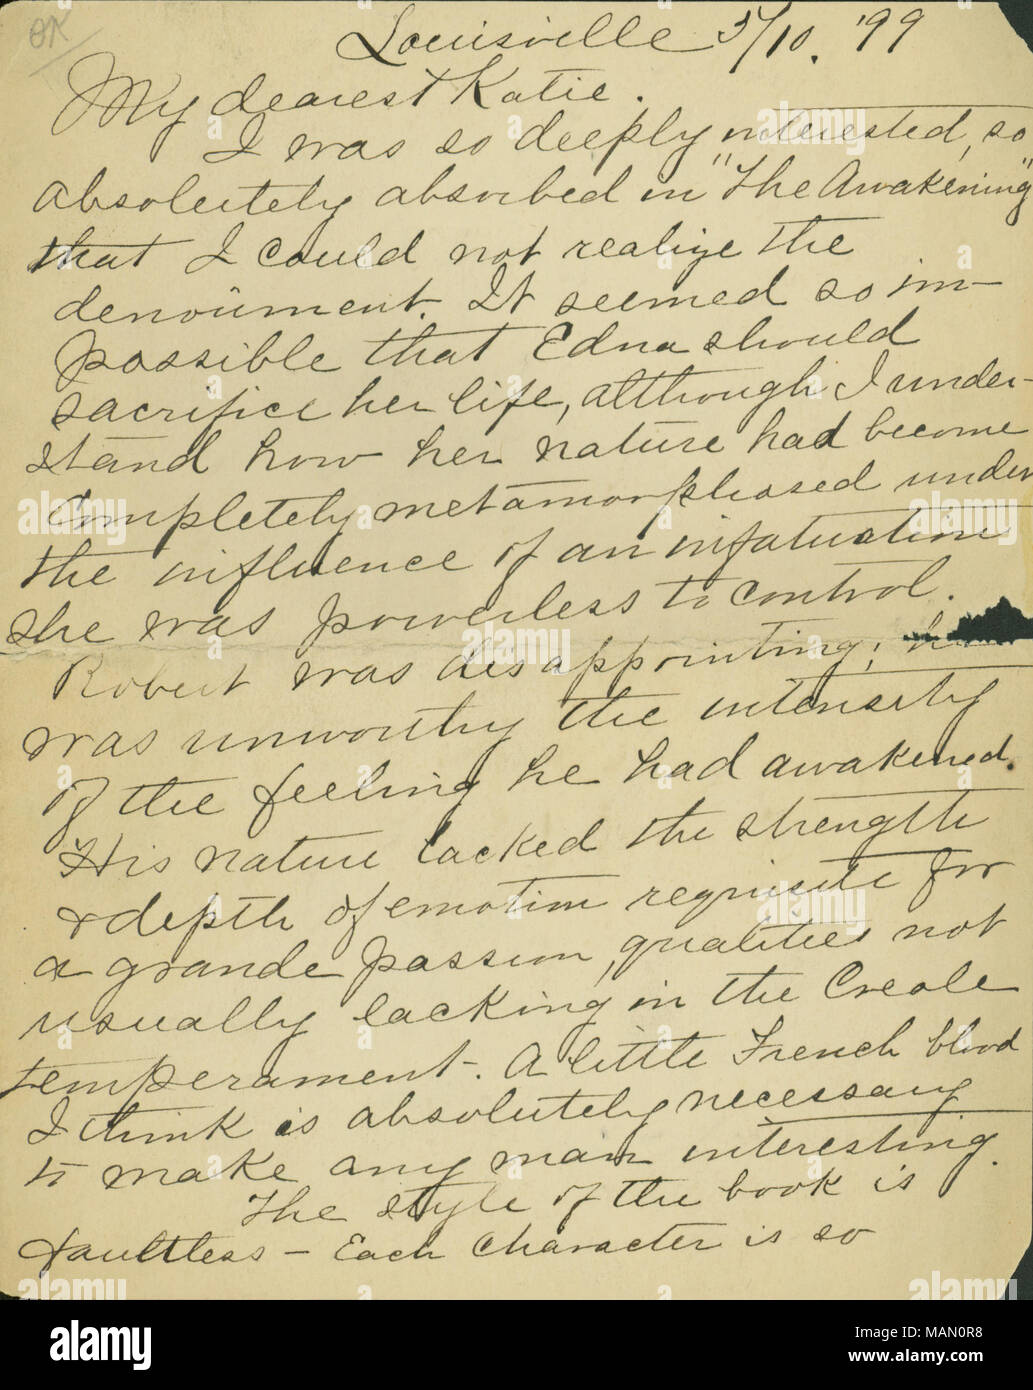 OK
Louisville 5/10. '99
My dearest Katie.
I was so deeply interested, so
absolutely absorbed in "The Awakening"
that I could not realize the
denoûment. It seemed so im-
possible that Edna should
sacrifice her life, although I under-
stand how her nature had become
completely metamorphosed under
the influence of an infatuation
she was powerless to control.
Robert was disappointing;
was unworthy the intensity
of the feeling he had awakened.
His nature lacked the strength
& depth of emotion requisite for
a grande passion, qualities not
usually lacking in the Creole
temperament. A little French blood
I think is absolutely necessary
to make any man interesting.
The style of the book is
faultless – Each character is so
alamy
Image ID: MAN0R8
www.alamy.com